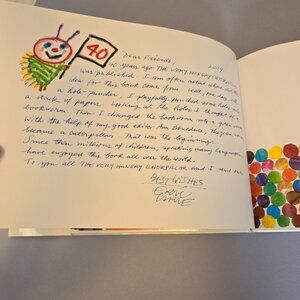 40
2009
Dear Friends,
40 years ago THE VERY HUNGRY CATERPILLAR
was published. I am often asked where did the
idea for this book come from. Well, one day, with
a hole-puncher I playfully punched some holes into
a stack of papers. Looking at the holes I thought of a
bookworm. Then I changed the bookworm into a
with the help of my good editor Ann Beneduce, the
became a caterpillar. That was the beginning.
Since then millions of children, speaking many languages,
have enjoyed this book all over the world.
To you all THE VERY HUNGRY CATERPILLAR and I send our
BEST WISHES
ERIC
CARLE